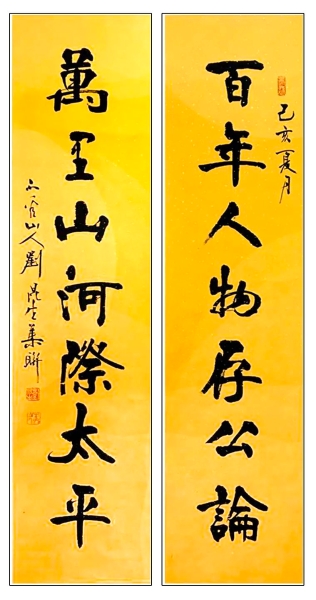 己亥夏月
百年人物存公論
萬里山河際太平
山人劉生集聯